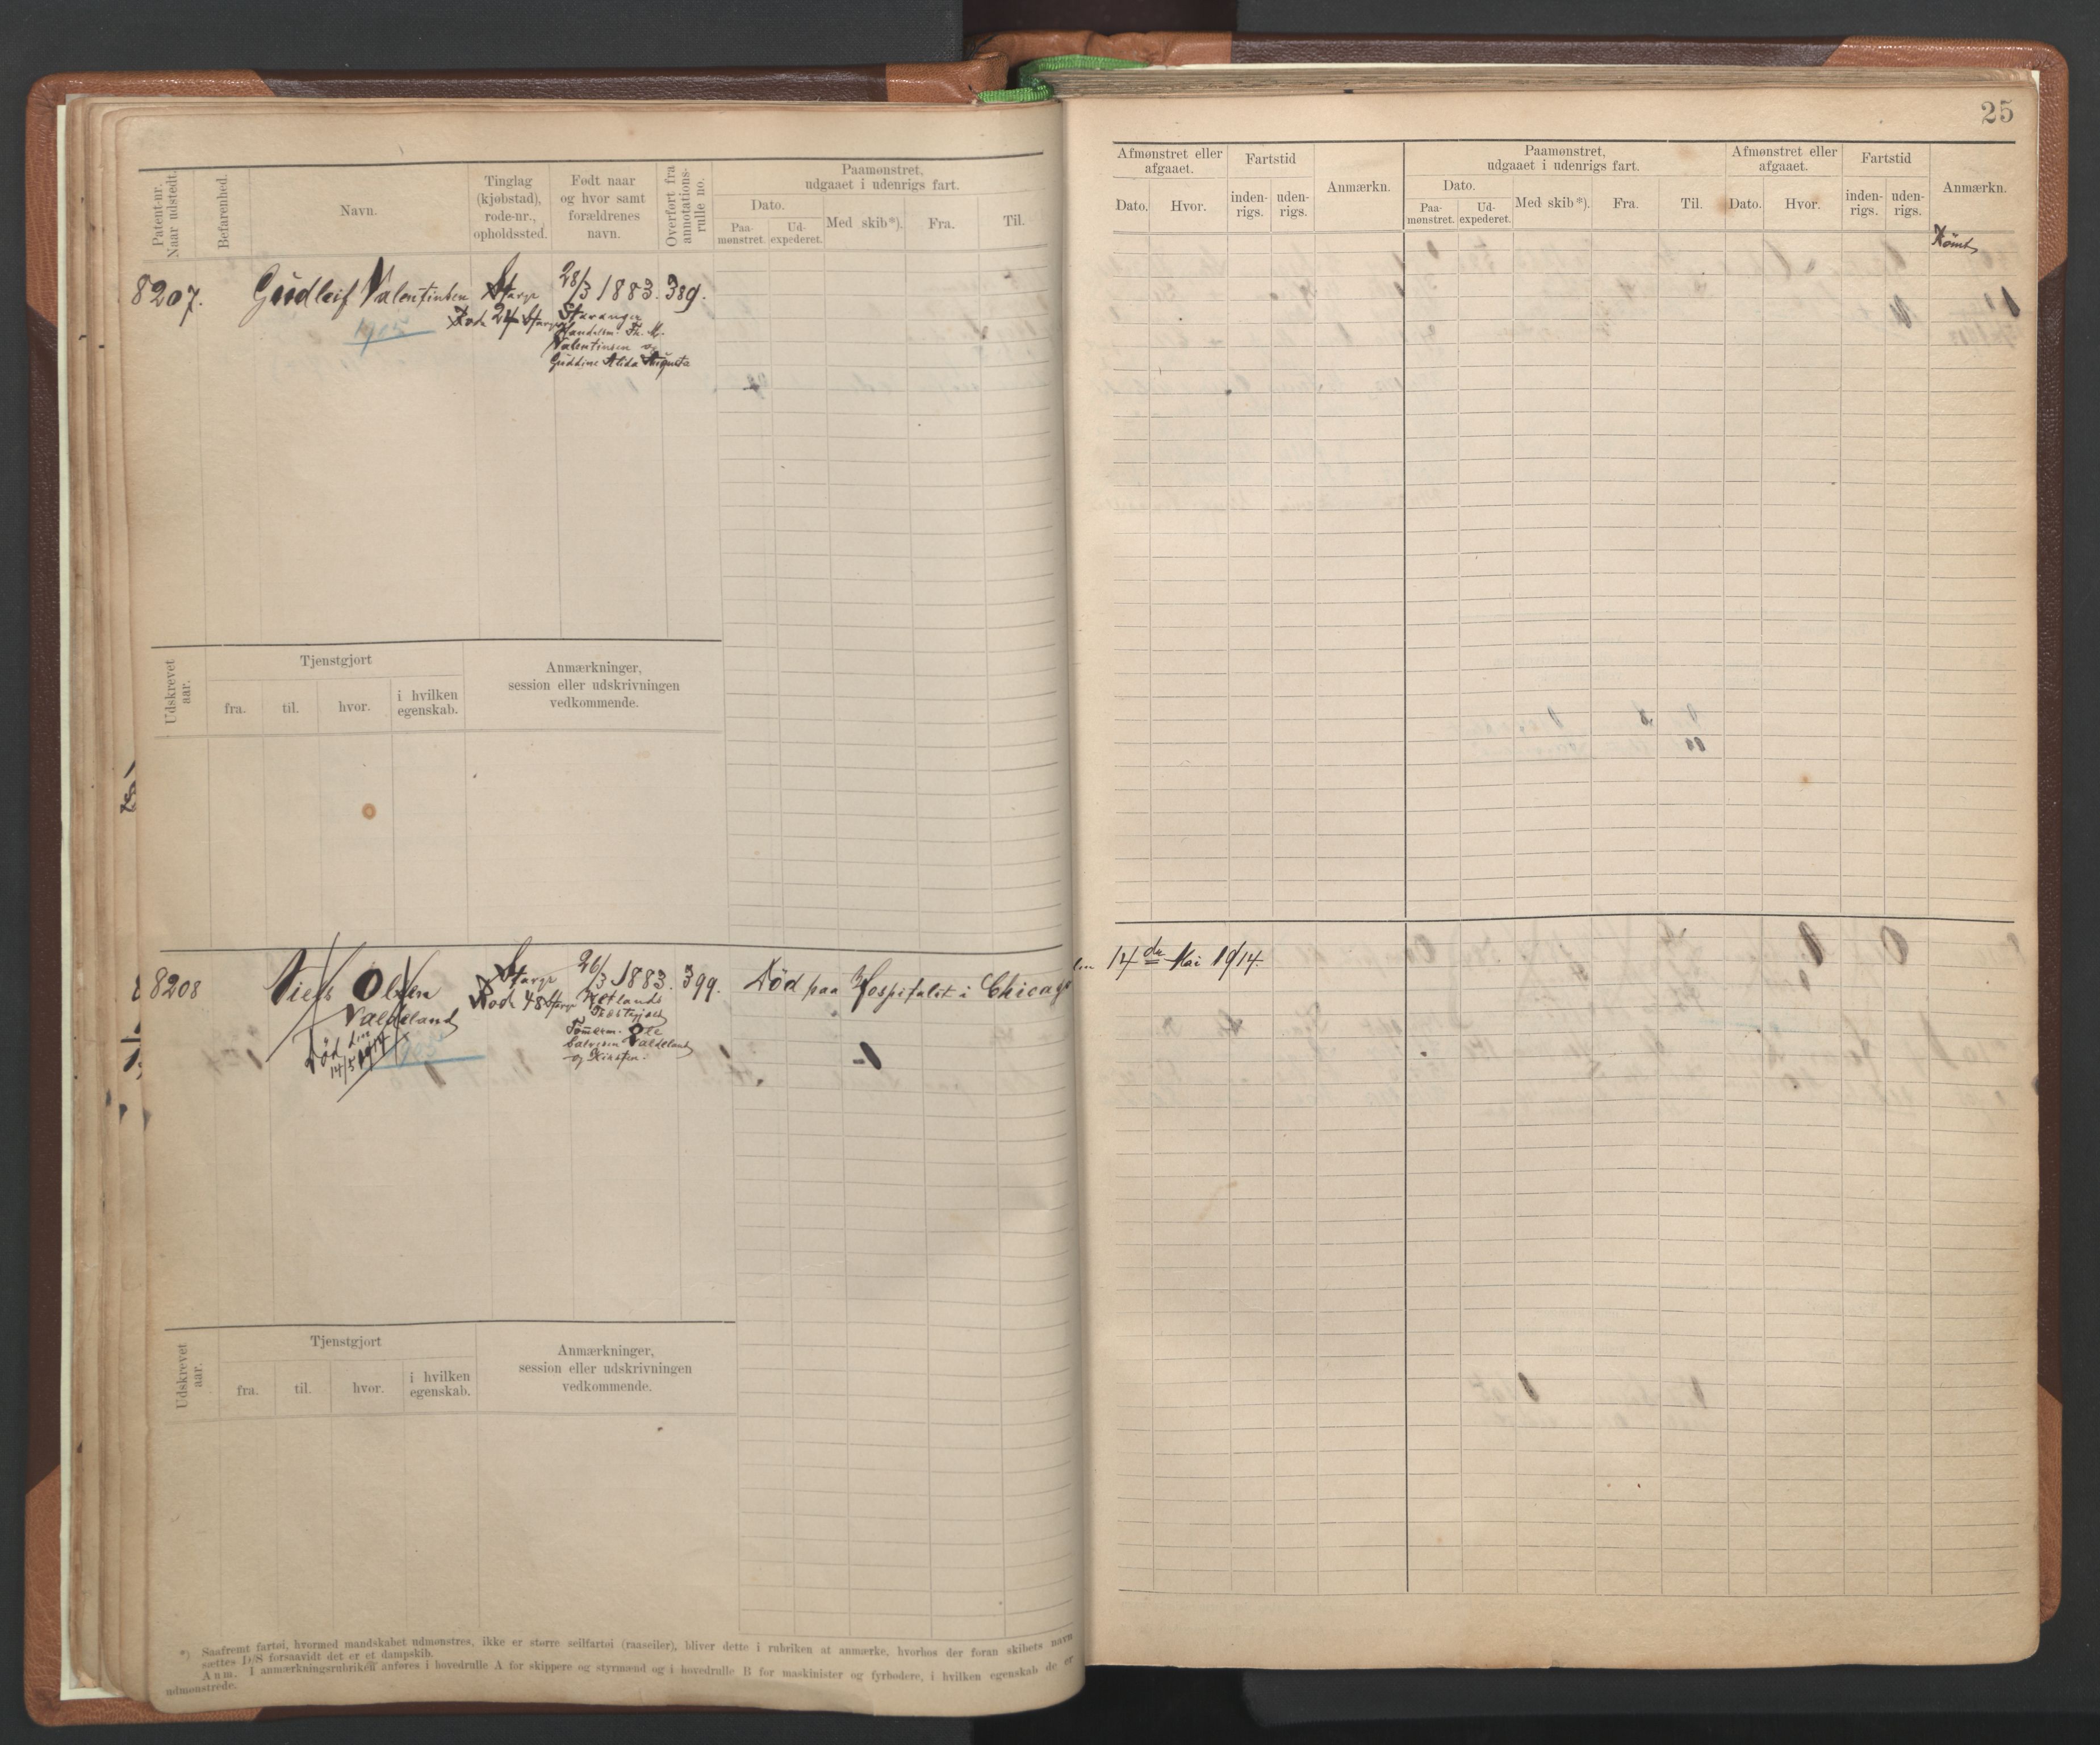 25
Patent-nr. Naar udstedt.
Befarenhed.
Navn.
Tinglag (kjøbstad), rode-nr., opholdssted.
Født naar og hvor samt forældrenes navn.
Overført fra annotations-rulle no.
Paamønstret, udgaaet i udenrigs fart.
Dato.
Paa-mønstret.
Ud-expederet.
Med skib*).
Fra.
Til.
Afmønstret eller afgaaet.
Dato.
Hvor.
Fartstid
inden-rigs.
uden-rigs.
Anmærkn.
Paamønstret, udgaaet i udenrigs fart.
Dato.
Paa-mønstret.
Ud-expederet.
Med skib*).
Fra.
Til.
Afmønstret eller afgaaet.
Dato.
Hvor.
Fartstid
inden-rigs.
uden-rigs.
Anmærkn.
8207.
Gudleif Valentinsen
1905
Stavgr
Rode 24 Stavgr
28/3 1883.
Stavanger
Handelsm. Th. M.
Valentinsen og
Guddine Alida Augusta
389.
Udskrevet aar.
Tjenstgjort
fra.
til.
hvor.
i hvilken egenskab.
Anmærkninger, session eller udskrivningen vedkommende.
8208
Niels Olsen
Valdeland
Død den
14/5 1914
1905
Stavgr
Rode 48 Stavgr
26/3 1883.
Hetlands
Tømerm. Ole
Valdeland
og Kirsten.
399.
Død paa Hospitalet i Chicago
den 14de Mai 1914.
Udskrevet aar.
Tjenstgjort
fra.
til.
hvor.
i hvilken egenskab.
Anmærkninger, session eller udskrivningen vedkommende.
*) Saafremt fartøi, hvormed mandskabet udmønstres, ikke er større seilfartøi (raaseiler), bliver dette i rubriken at anmærke, hvorhos der foran skibets navn
sættes D/S forsaavidt det er et dampskib.
Anm. I anmærkningsrubriken anføres i hovedrulle A for skippere og styrmænd og i hovedrulle B for maskinister og fyrbødere, i hvilken egenskab de er
udmønstrede.